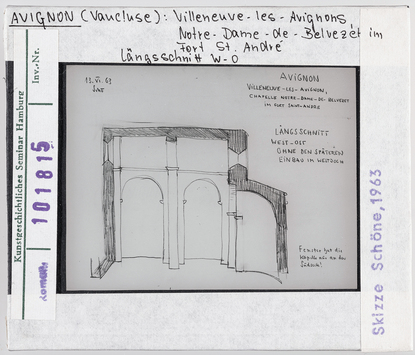 AVIGNON (Vaucluse): Villeneuve-les-Avignons
Notre-Dame-de-Belvezét im
Fort St. André
Längsschnitt W-O
Kunstgeschichtliches Seminar Hamburg
Inv.-Nr.
101815
roman.
13.VI.63
AVIGNON
VILLENEUVE-LES-AVIGNON,
CHAPELLE NOTRE-DAME-DE-BELVEZET
IM FORT SAINT-ANDRÉ
LÄNGSSCHNITT
WEST-OST
OHNE DEN SPÄTEREN
EINBAU IM WESTJOCH
Fenster hat die
Kapelle nur an der
Südseite!
Skizze Schöne, 1963